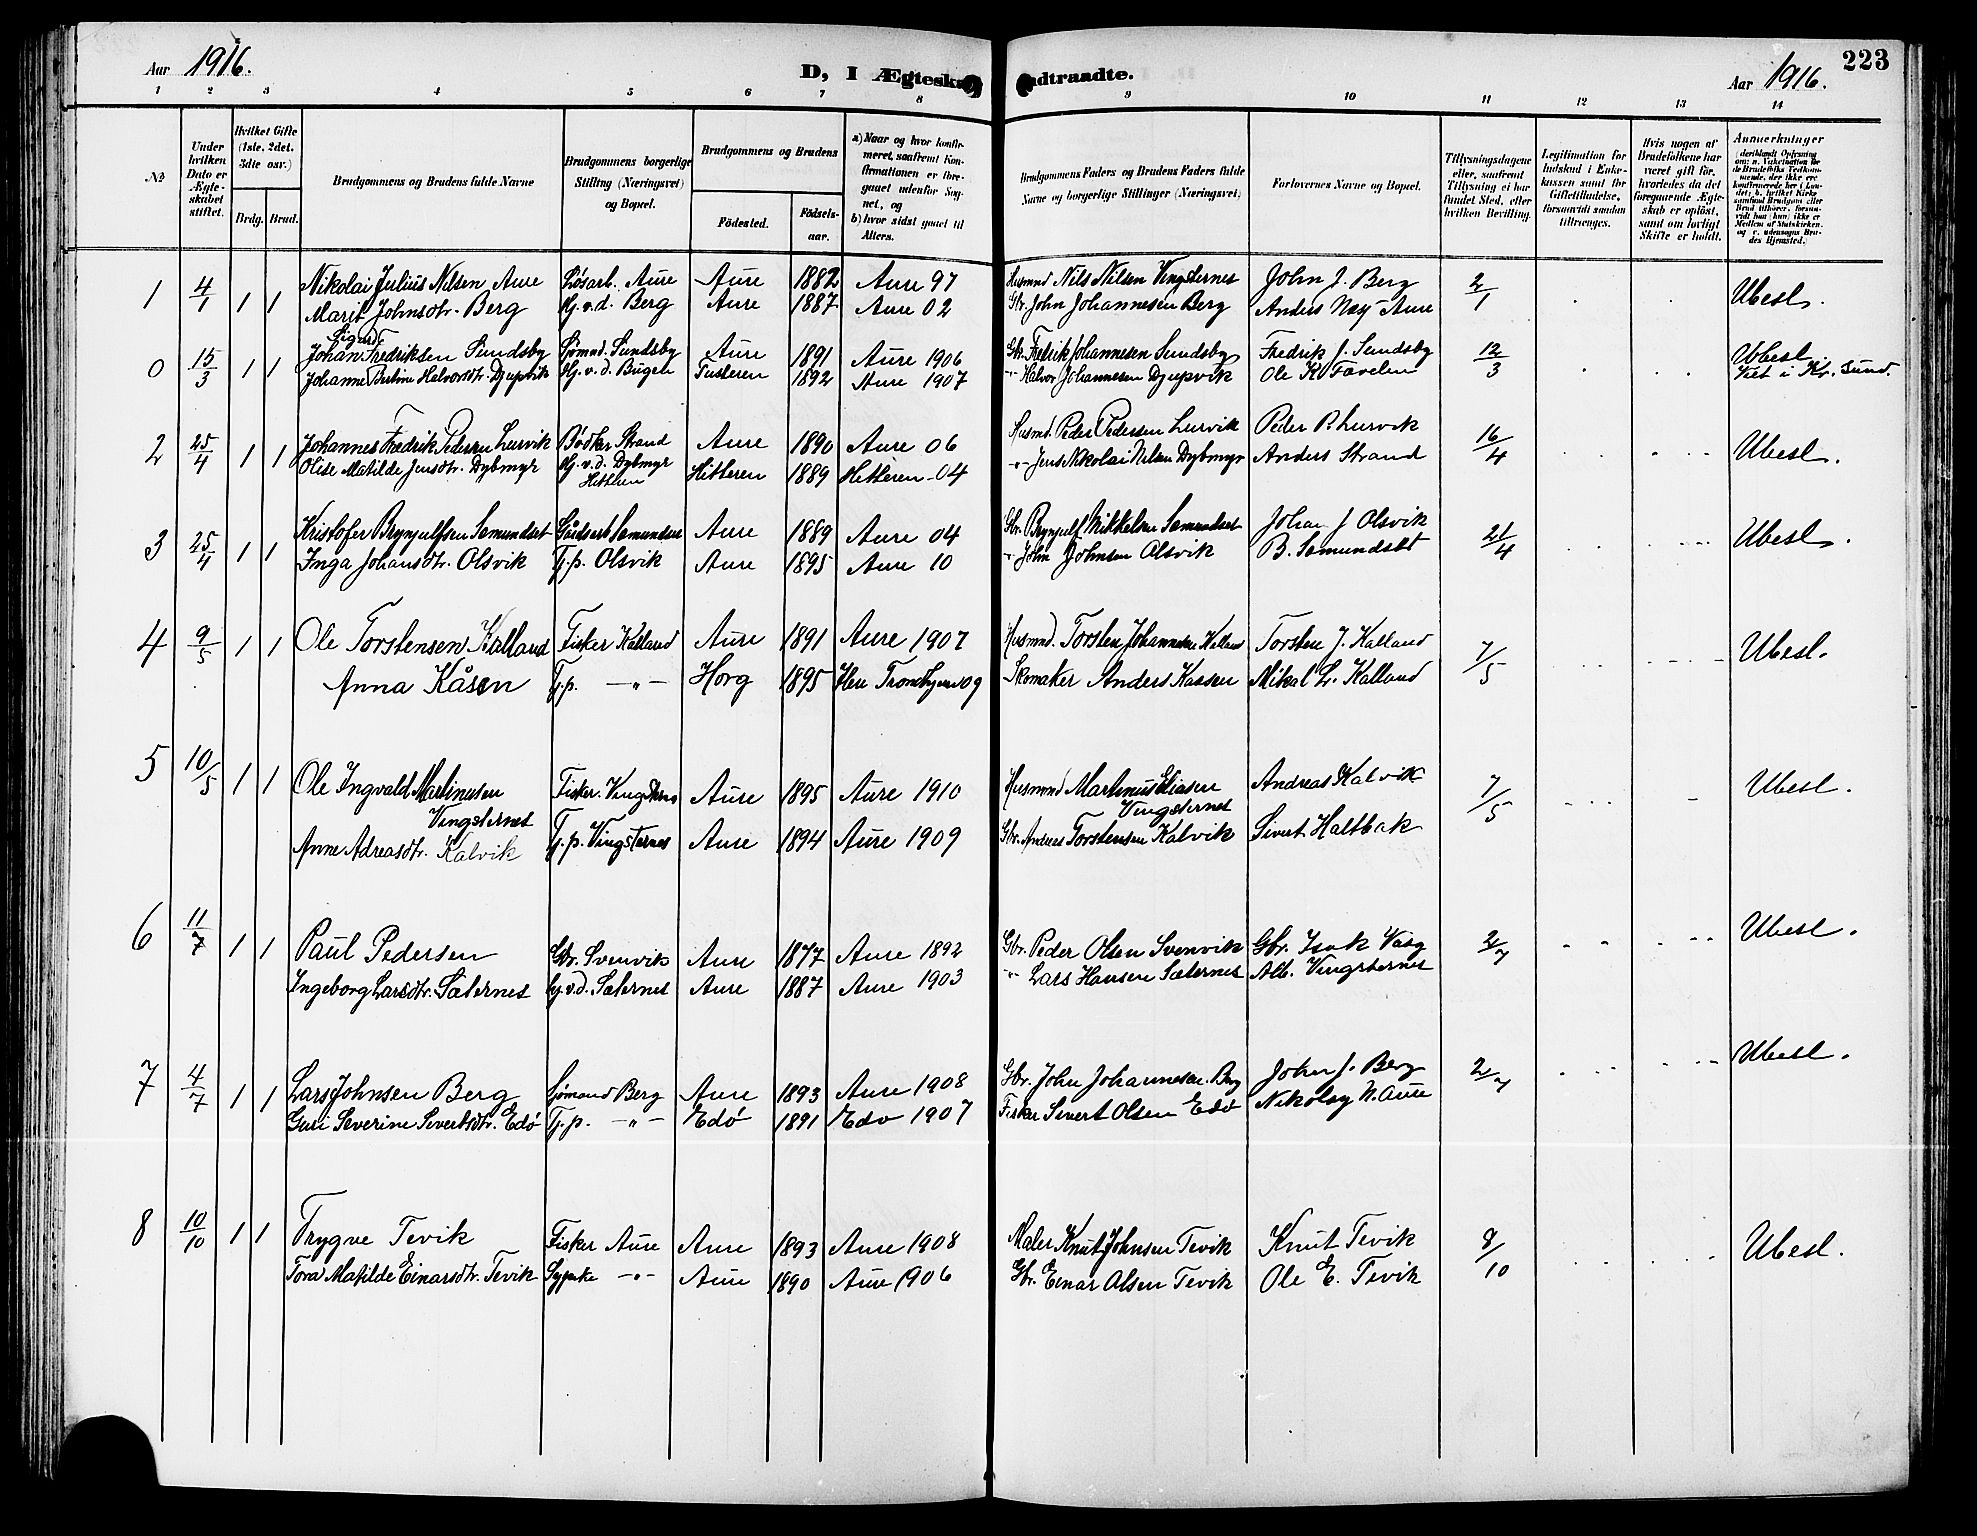 Aar 1916.
D, I Ægtesk
ndtraadte.
Aar 1916.
223
1 2 3 4 5 6 7 8 9 10 11 12 13 14
№
Under hvilken Dato er Ægteskabet stiftet.
Hvilket Gifte (1ste, 2det, 3die osv.)
Brdg. Brud.
Brudgommens og Brudens fulde Navne
Brudgommens borgerlige Stilling (Næringsvei) og Bopæl.
Brudgommens og Brudens
Fødested. Fødselsaar.
a) Naar og hvor konfirmeret, saafremt Konfirmationen er foregaaet udenfor Sognet, og
b) hvor sidst gaaet til Alters.
Brudgommens Faders og Brudens Faders fulde Navne og borgerlige Stillinger (Næringsvei)
Forlovernes Navne og Bopæl.
Tillysningsdagene eller, saafremt Tillysning ei har fundet Sted, efter hvilken Bevilling.
Legitimation for Indskud i Enkekassen samt for Giftetilladelse, forsaavidt saadan tiltrænges.
Hvis nogen af Brudefolkene har været gift før, hvorledes da det foregaaende Ægteskab er opløst, samt om lovligt Skifte er holdt.
Anmerkninger
1 4/1 1 1 Nikolai Julius Nilsen Aure Løsarb. Aure Aure 1882 Aure 97 Husmnd Nils Nilsen Vingsternes John J. Berg 2/1 Ubesl.
Marit Johnsdtr. Berg Hj.v.d. Berg Aure 1887 Aure 02 Gbr. John Johannesen Berg Anders Næs Aure
Sigurd
0 15/3 1 1 Johan Fredriksen Sundsby Sjømnd. Sundsby Aure 1891 Aure 1906 Gbr. Fredrik Johannesen Sundsby Fredrik J. Sundsby 12/3 Ubesl.
Johanne Bertine Halvorsdtr. Djupvik Hj.v.d. Bugen Tusteren 1892 Aure 1907 -"- Halvor Johannesen Djupvik Ole K. Favelen Viet i Kr. Sund.
2 25/4 1 1 Johannes Fredrik Pedersen Lurvik Bødker Strand Aure 1890 Aure 06 Husmd. Peder Pedersen Lurvik Peder P. Lurvik 16/4 Ubesl.
Olise Matilde Jensdtr. Dybmyr Hj.v.d. Dybmyr Hitteren Hitteren 1889 Hitteren -04 -"- Jens Nikolai Nilsen Dybmyr Anders Strand
3 25/4 1 1 Kristofer Brynjulfsen Semundset Gårdsarb Semundset Aure 1889 Aure 04 Gbr. Brynjulf Mikkelsen Semundset Johan J Olsvik 21/4 Ubesl.
Inga Johansdtr. Olsvik Tj.p. Olsvik Aure 1895 Aure 10 -"- John Johnsen Olsvik B. Semundset
4 9/5 1 1 Ole Torstensen Kalland Fisker Kalland Aure 1891 Aure 1907 Husmnd. Torsten Johannesen Kalland Torsten J. Kalland 7/5 Ubesl.
Anna Kåsen Tj.p. -"- Horg 1895 Skomaker Anders Kaasen Mikal L. Kalland
5 10/5 1 1 Ole Ingvald Martinusen Vingsternes Fisker. Vingsternes Aure 1895 Aure 1910 Husmnd Martinus Eliasen Vingsternes Andreas Kalvik 7/5 Ubesl.
Anne Adreasdtr. Kalvik Tj.p. Vingsternes Aure 1894 Aure 1909 Gbr. Andreas Torstensen Kalvik Sivert Haltbak
6 11/7 1 1 Paul Pedersen Gbr. Svenvik Aure 1877 Aure 1892 Gbr. Peder Olsen Svenvik Gbr. Isak Vaag 2/7 Ubesl.
Ingeborg Larsdtr. Sæternes Hj.v.d. Sæternes Aure 1887 Aure 1903 -"- Lars Hansen Sæternes Alb. Vingsternes
7 4/7 1 1 Lars Johnsen Berg Sjømand Berg Aure 1893 Aure 1908 Gbr. John Johannesen Berg John J. Berg 2/7 Ubesl.
Guri Severine Sivertsdtr. Edø Tj.p. -"- Edø 1891 Edø 1907 Fisker Sivert Olsen Edø Nikolay N. Aure
8 10/10 1 1 Trygve Tevik Fisker Aure Aure 1893 Aure 1908 Maler Knut Johnsen Tevik Knut Tevik 8/10 Ubesl.
Tora Matilde Einarsdtr. Tevik Sypike -"- Aure 1890 Aure 1906 Gbr. Einar Olsen Tevik Ole E. Tevik